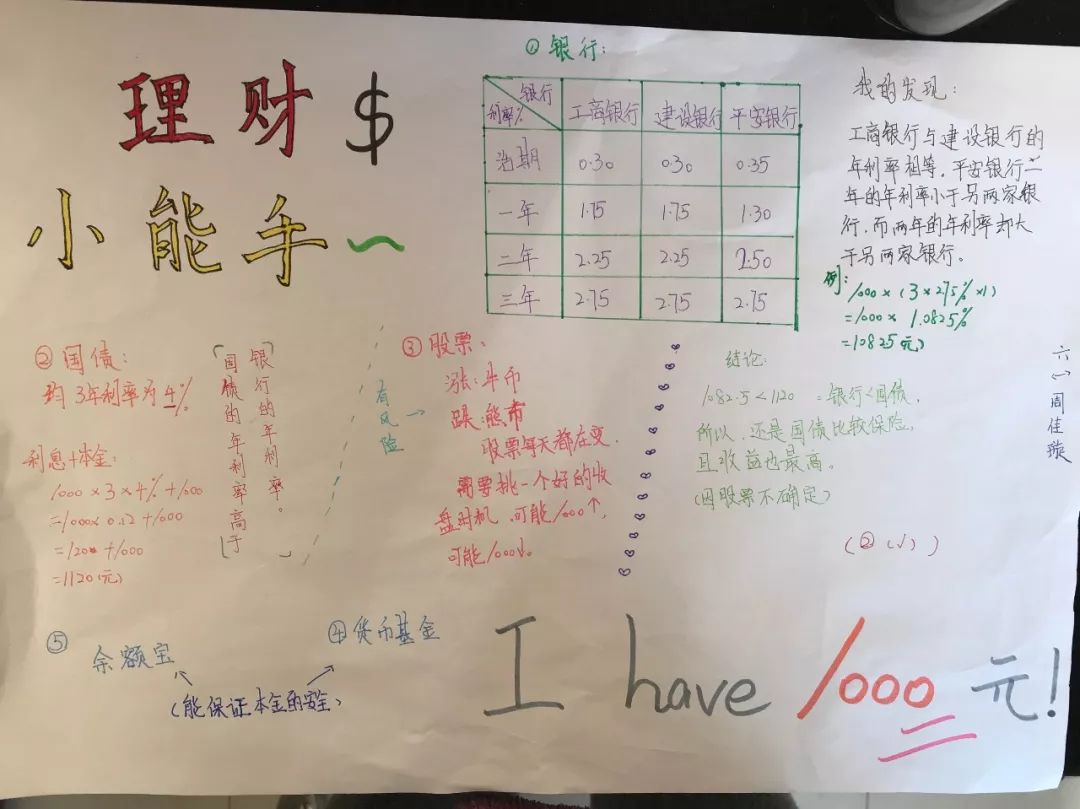 理财$
小能手~
①银行:
银行
利率% 工商银行 建设银行 平安银行
活期 0.30 0.30 0.35
一年 1.75 1.75 1.30
二年 2.25 2.25 2.50
三年 2.75 2.75 2.75
我的发现:
工商银行与建设银行的
年利率相等,平安银行一
年的年利率小于另两家银
行,而两年的年利率却大
于另两家银行。
例:1000×(3×2.75%×1)
=1000×1.0825%
=1082.5(元)
②国债:
均3年利率为4%
利息+本金:
1000×3×4%+1000
=1000×0.12+1000
=120+1000
=1120(元)
国债的年利率高于
银行的年利率。
有风险→
③股票:
涨:牛市
跌:熊市
股票每天都在变,
需要挑一个好的收
盘时机,可能1000↑,
可能1000↓。
结论:
1082.5<1120 =银行<国债,
所以,还是国债比较保险,
且收益也最高。
(因股票不确定)
(②(√))
六(1)周佳璇
⑤余额宝
④货币基金
(能保证本金的安全)
I have 1000元!